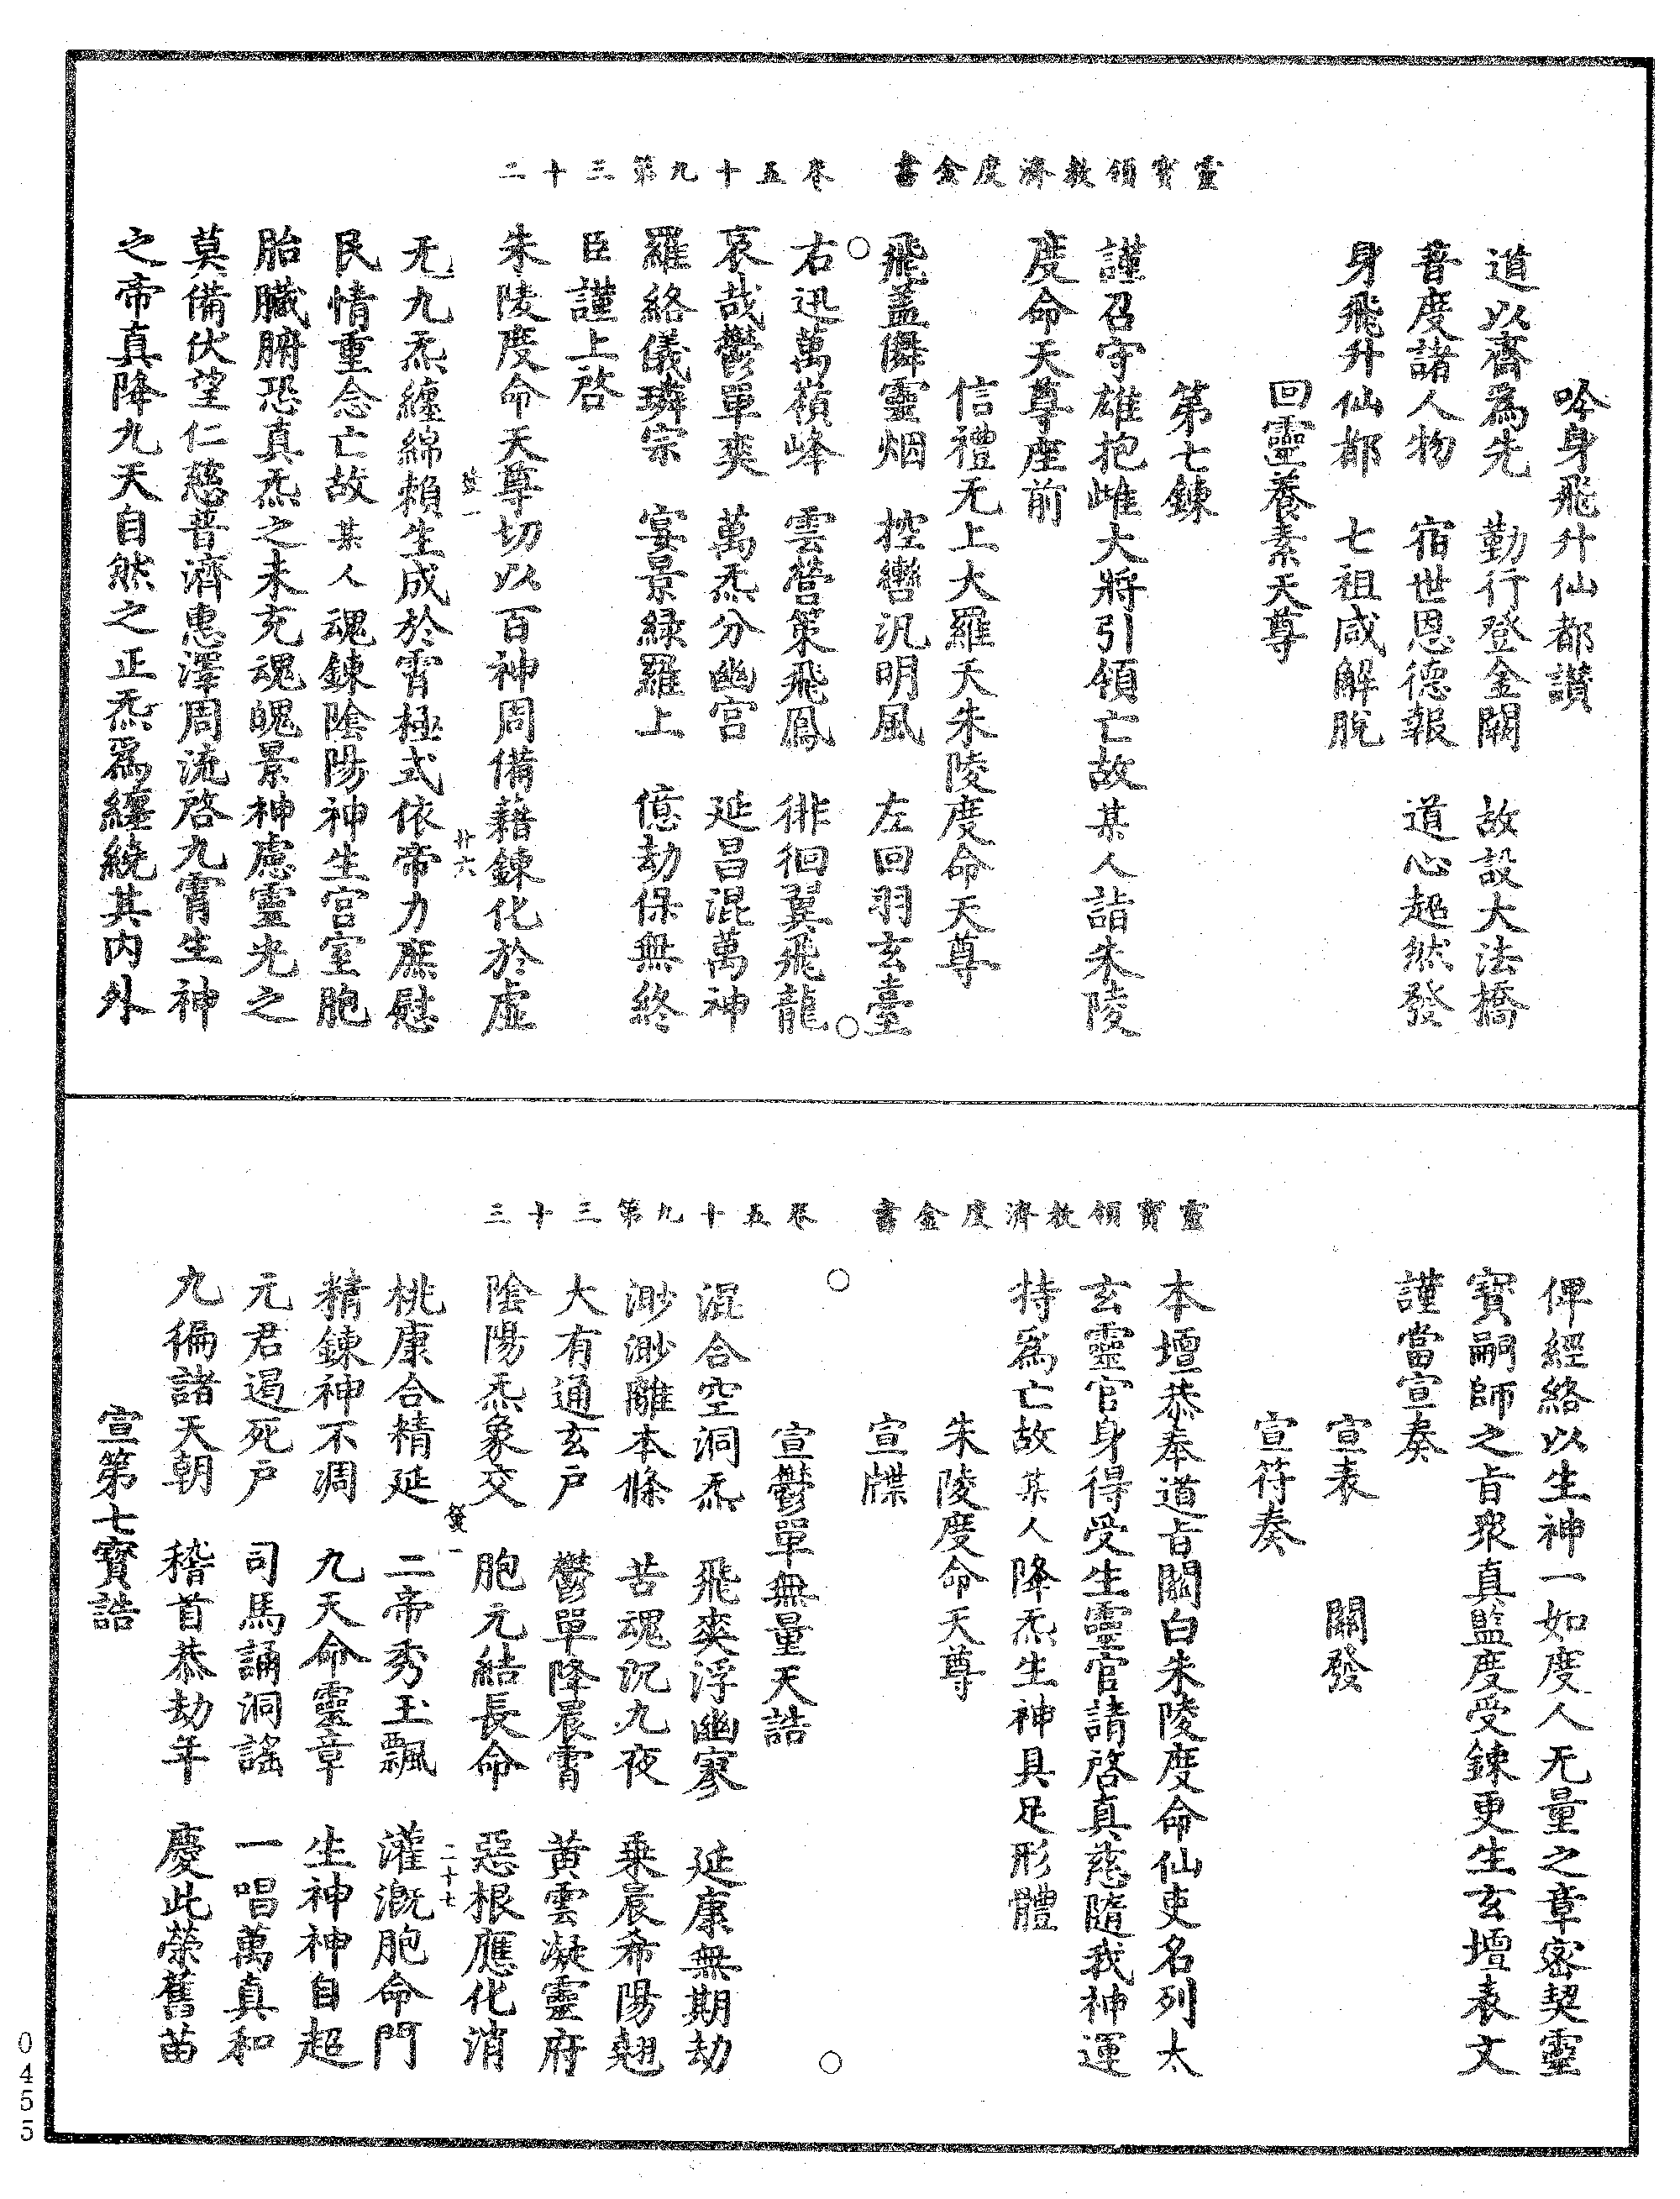 靈寶領教濟度金書　卷五十九第三十二
吟身飛升仙都讚
道以齋為先　勤行登金闕　故設大法橋
普度諸人物　宿世恩德報　道心超然發
身飛升仙都　七祖咸解脫
回靈養素天尊
第七鍊
謹召守雄抱雌大將引領亡故某人詣朱陵
度命天尊座前
信禮无上大羅天朱陵度命天尊
飛蓋儛靈烟　控轡汎明風　左回羽玄臺
右迅萬嶺峰　雲營策飛鳳　徘徊翼飛龍
哀哉鬱單爽　萬炁分幽宮　延昌混萬神
羅絡儀璘宗　宴景緑羅上　億劫保無終
臣謹上啓
朱陵度命天尊切以百神周備藉鍊化於虛
无九炁纏綿賴生成於霄極式依帝力庶慰
民情重念亡故某人魂鍊陰陽神生宫室胞
胎臟腑恐真炁之未充魂魄景神慮靈光之
莫備伏望仁慈普濟惠澤周流啓九霄生神
之帝真降九天自然之正炁爲纏繞其内外
廿六
靈寶領教濟度金書　卷五十九第三十三
俾經絡以生神一如度人无量之章密契靈
寶嗣師之旨衆真監度受鍊更生玄壇表文
謹當宣奏
宣表　關發
宣符奏
本壇恭奉道旨關白朱陵度命仙吏名列太
玄靈官身得受生靈官請啓真慈隨我神運
特爲亡故某人降炁生神具足形體
朱陵度命天尊
宣牒
宣鬱單無量天誥
混合空洞炁　飛爽浮幽寥　延康無期劫
渺渺離本條　苦魂沉九夜　乗晨希陽翹
大有通玄户　鬱單降晨霄　黄雲凝靈府
陰陽炁象交　胞元結長命　惡根應化消
桃康合精延　二帝秀玉飄　灌溉胞命門
精鍊神不凋　九天命靈章　生神神自超
元君遏死户　司馬誦洞謠　一唱萬真和
九徧諸天朝　稽首恭劫年　慶此榮舊苗
宣第七寶誥
二十七
0455